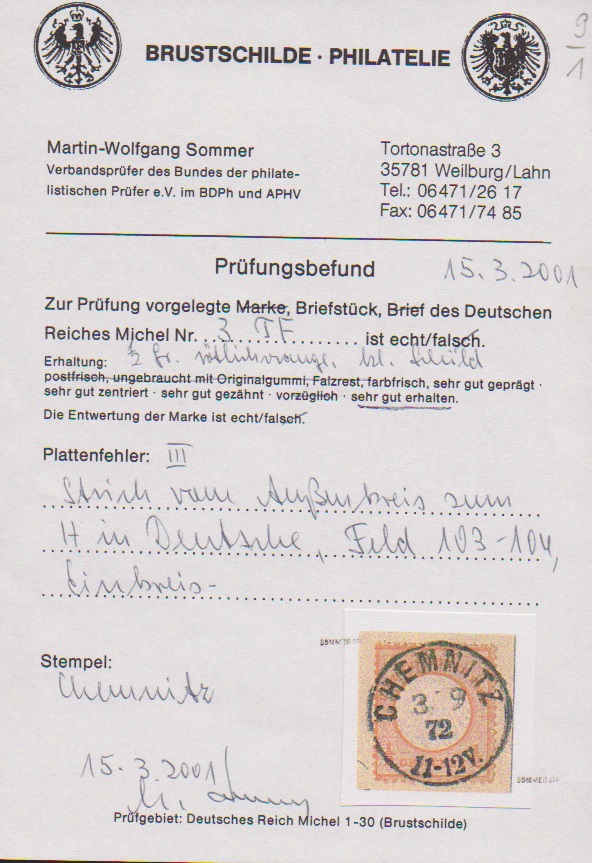 BRUSTSCHILDE · PHILATELIE
9
1
Martin-Wolfgang Sommer
Verbandsprüfer des Bundes der philate-
listischen Prüfer e.V. im BDPh und APHV
Tortonastraße 3
35781 Weilburg/Lahn
Tel.: 06471/26 17
Fax: 06471/74 85
Prüfungsbefund
15.3.2001
Zur Prüfung vorgelegte Marke, Briefstück, Brief des Deutschen
Reiches Michel Nr. 3 PF ist echt/falsch.
Erhaltung: ½ Gr. rötlichorange, kl. Schild
postfrisch, ungebraucht mit Originalgummi, Falzrest, farbfrisch, sehr gut geprägt ·
sehr gut zentriert · sehr gut gezähnt · vorzüglich · sehr gut erhalten.
Die Entwertung der Marke ist echt/falsch.
Plattenfehler: III
Strich vom Außenkreis zum
H in Deutsche, Feld 103-104,
Einkreis-
Stempel:
Chemnitz
CHEMNITZ
3 9
72
11-12V.
15.3.2001
Prüfgebiet: Deutsches Reich Michel 1-30 (Brustschilde)